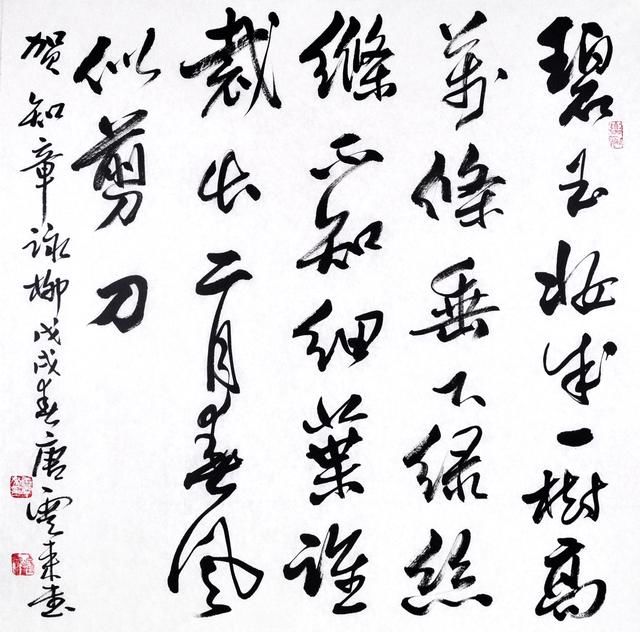 碧玉妝成一樹高
萬條垂下綠絲
絛不知細葉誰
裁出二月春風
似剪刀
賀知章詠柳戊戌春唐雲來書